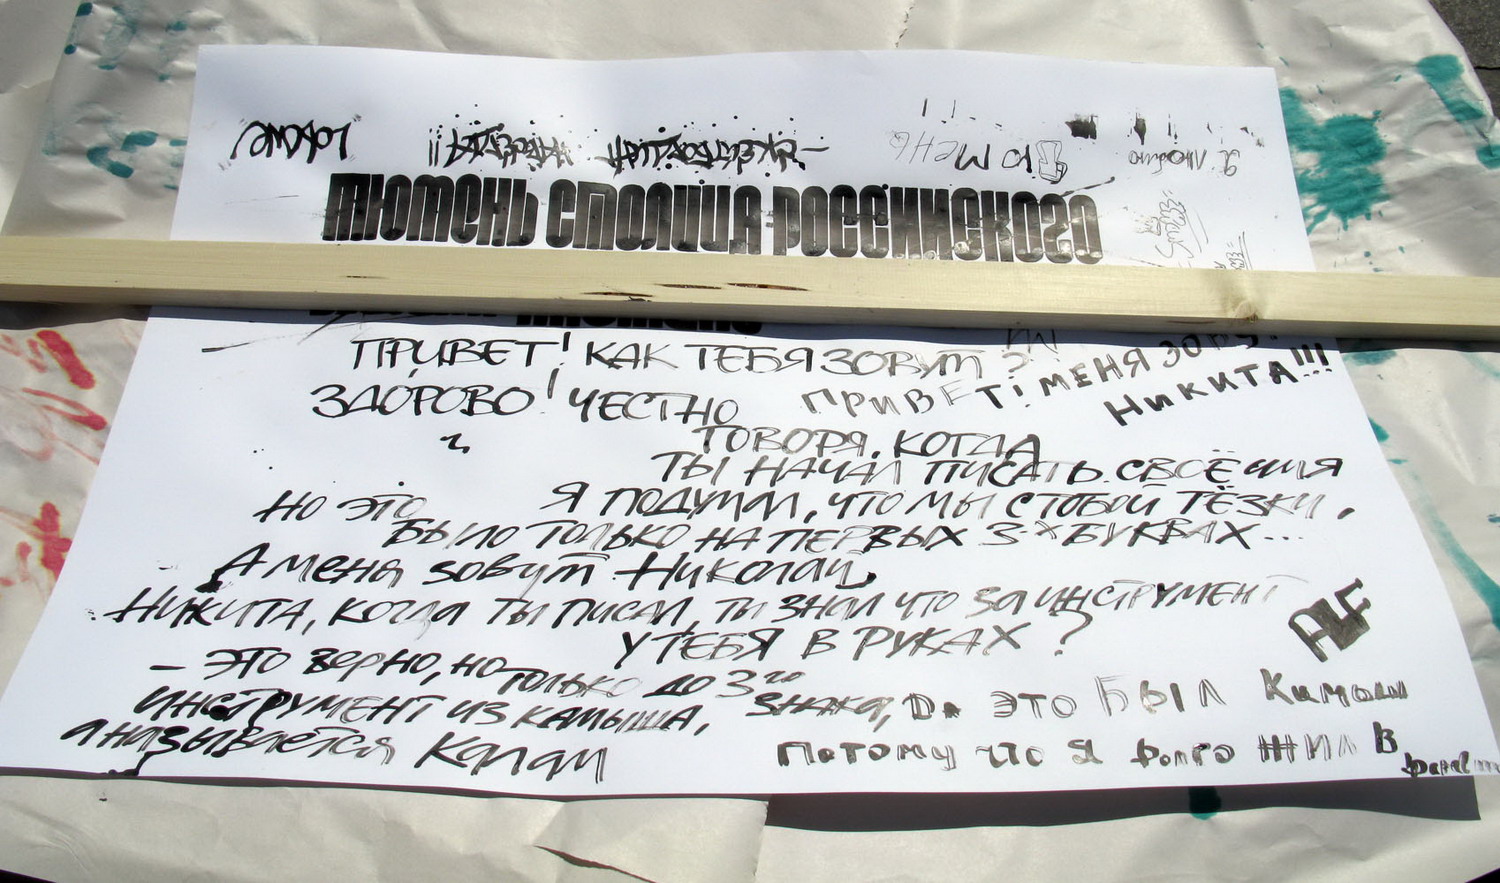 Я люблю
Тюмень
ТЮМЕНЬ СТОЛИЦА РОССИИСКОГО
ПРИВЕТ! КАК ТЕБЯ ЗОВУТ?
ПРИВЕТ! МЕНЯ ЗОВУТ
НИКИТА!!!
ЗДОРОВО! ЧЕСТНО
ГОВОРЯ, КОГДА
ТЫ НАЧАЛ ПИСАТЬ СВОЁ ИМЯ
Я ПОДУМАЛ, ЧТО МЫ С ТОБОЙ ТЁЗКИ,
НО ЭТО
БЫЛО ТОЛЬКО НА ПЕРВЫХ 3-Х БУКВАХ...
А меня зовут Николай,
НИКИТА, КОГДА ТЫ ПИСАЛ, ТЫ ЗНАЛ ЧТО ЗА ИНСТРУМЕНТ
У ТЕБЯ В РУКАХ?
ALF
– ЭТО верно, но только до 3го знака,
ИНСТРУМЕНТ ИЗ КАМЫША,
а называется Калам
Да ЭТО БЫЛ Камыш
Потому что Я долго жил в